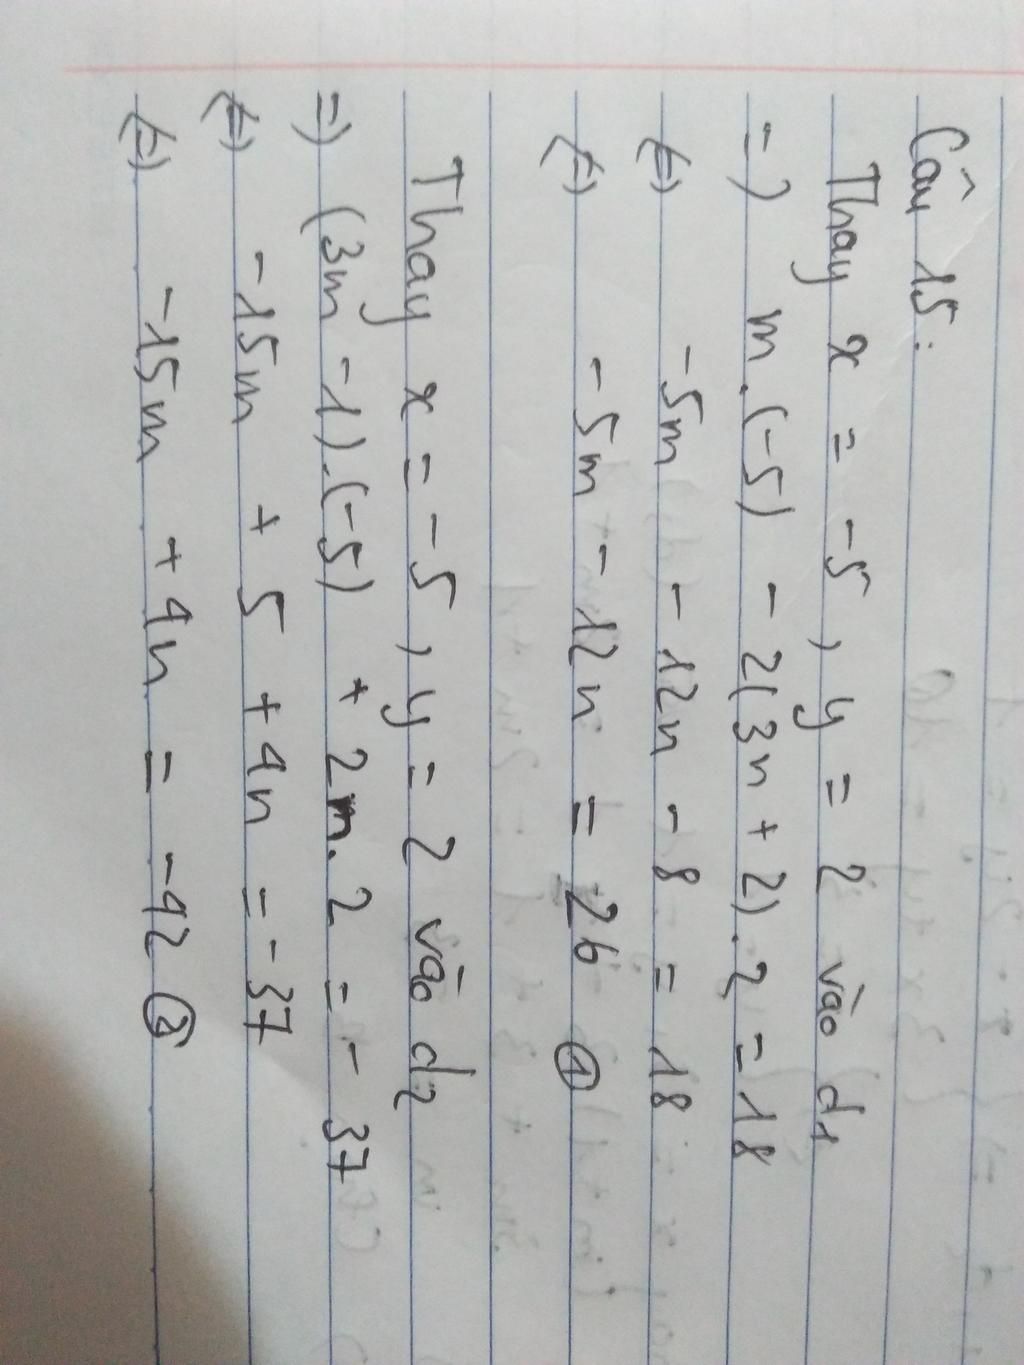 Câu 15:
Thay x = -5, y = 2 vào d1
=) m.(-5) - 2(3n + 2).2 = 18
(=) -5m - 12n - 8 = 18
(=) -5m - 12n = 26 ①
Thay x = -5, y = 2 vào d2
=) (3m - 1).(-5) + 2n.2 = -37
(=) -15m + 5 + 4n = -37
(=) -15m + 4n = -42 ②